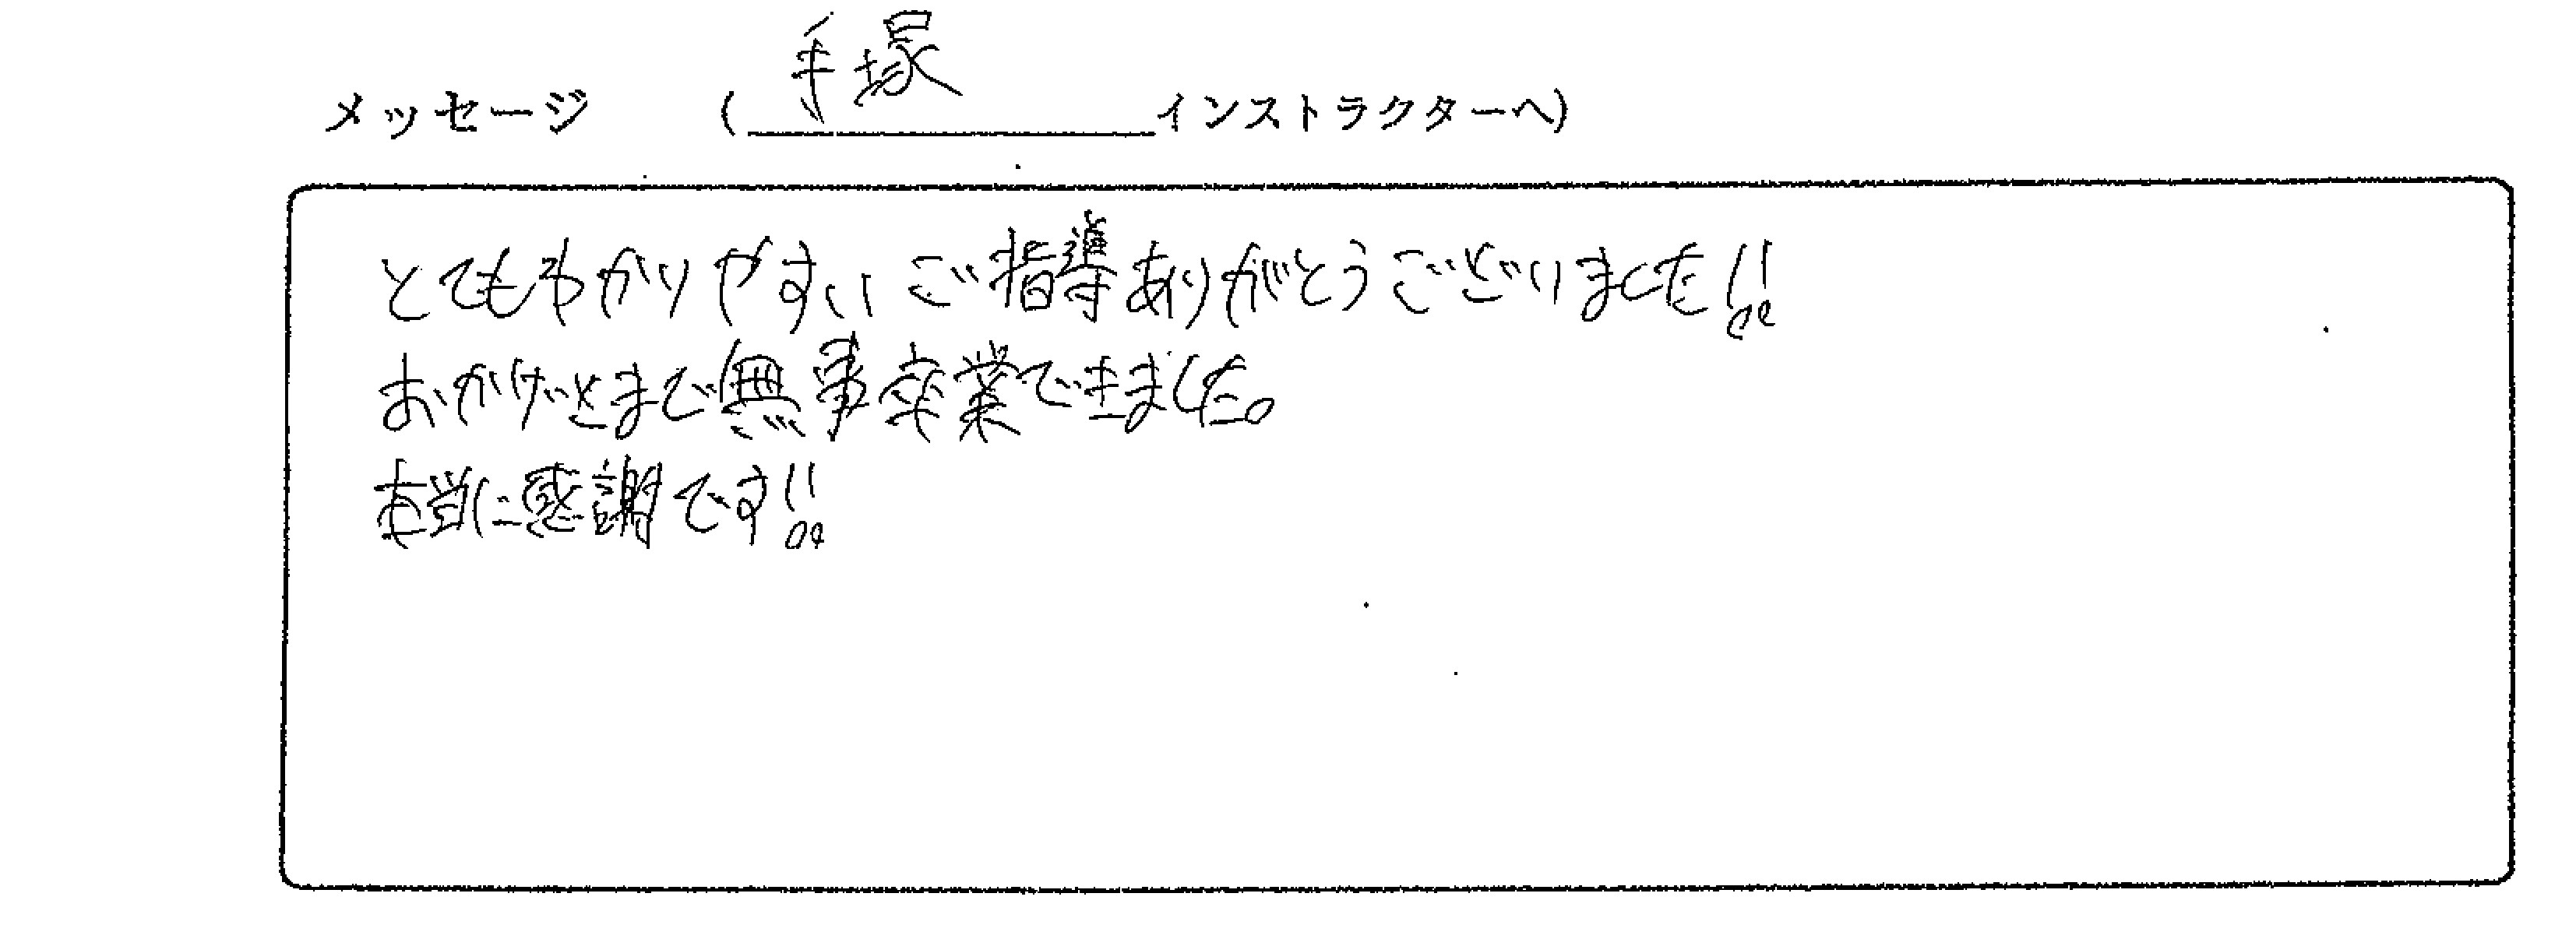 メッセージ （手塚インストラクターへ）
とてもわかりやすいご指導ありがとうございました!!
おかげさまで無事卒業できました。
本当に感謝です!!